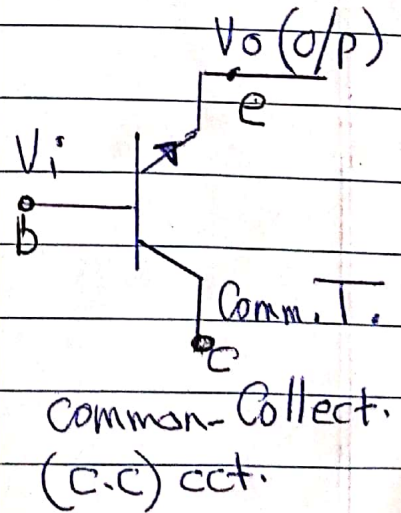 Vo (o/p)
e
Vi
b
Comm. T.
c
Common-Collect.
(C.C) cct.